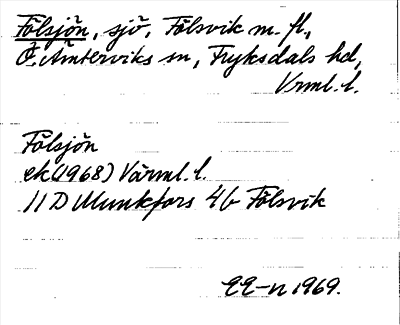 Fölsjön, sjö, Fölsvik m. fl.,
Ö. Ämterviks sn, Fryksdals hd,
Vrml. l.
Fölsjön
ek (1968) Värml. l.
11 D Munkfors 4b Fölsvik
1969.